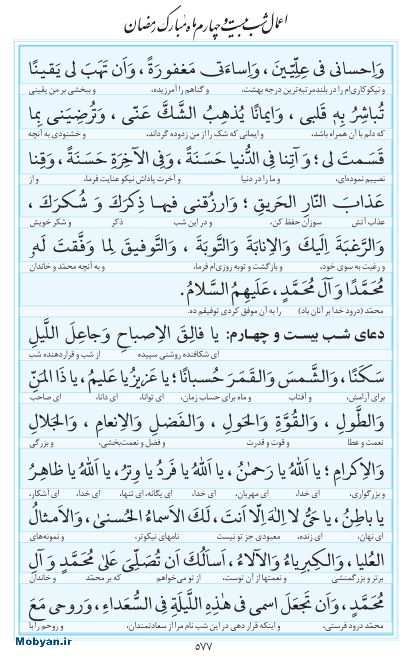 اعمال شب بیست و چهارم ماه مبارک رمضان
وَاِحسانی فی عِلِّیّینَ، وَاِساءَتی مَغفورَةً، وَاَن تَهَبَ لی یَقینًا
و نیکوکاری‌ام را در بلندمرتبه‌ترین درجه بهشت، و گناهم را آمرزیده، و ببخشی بر من یقینی
تُباشِرُ بِهٖ قَلبی، وَایمانًا یُذهِبُ الشَّکَّ عَنّی، وَتُرضِیَنی بِما
که دلم با آن همراه باشد، و ایمانی که شک را از من زدوده گرداند، و خشنودی به آنچه
قَسَمتَ لی؛ وَآتِنا فِی الدُّنیا حَسَنَةً، وَفِی الآخِرَةِ حَسَنَةً، وَقِنا
نصیبم نموده‌ای، و ما را در دنیا و آخرت پاداش نیکو عنایت فرما، و از
عَذابَ النّارِ الحَریقِ؛ وَارزُقنی فیها ذِکرَکَ وَ شُکرَکَ،
عذاب آتش سوزان حفظ کن، و در این شب ذکر و شکر خویش
وَالرَّغبَةَ اِلَیکَ وَالاِنابَةَ وَالتَّوبَةَ، وَالتَّوفیقَ لِما وَفَّقتَ لَهٗ
و رغبت به سوی خود، و بازگشت و توبه روزی‌ام فرما، و به آنچه محمّد و خاندان
مُحَمَّدًا وَآلَ مُحَمَّدٍ، عَلَیهِمُ السَّلامُ.
محمّد (درود خدا بر آنان باد) را به آن موفق کردی توفیقم ده.
دعای شب بیست و چهارم: یا فالِقَ الاِصباحِ وَجاعِلَ اللَّیلِ
ای شکافنده روشنی سپیده از شب و قراردهنده شب
سَکَنًا، وَالشَّمسَ وَالقَمَرَ حُسبانًا؛ یا عَزیزُ یا عَلیمُ، یا ذَا المَنِّ
برای آرامش، و آفتاب و ماه برای حساب زمان، ای توانا، ای دانا، ای صاحب
وَالطَّولِ، وَالقُوَّةِ وَالحَولِ، وَالفَضلِ وَالاِنعامِ، وَالجَلالِ
نعمت و عطا و قوت و قدرت و فضل و نعمت‌بخشی، و بزرگی
وَالاِکرامِ؛ یا اَللّٰهُ یا رَحمٰنُ، یا اَللّٰهُ یا فَردُ یا وِترُ، یا اَللّٰهُ یا ظاهِرُ
و بزرگواری، ای خدا، ای مهربان، ای خدا، ای یگانه، ای تنها، ای خدا، ای آشکار،
یا باطِنُ، یا حَیُّ لا اِلٰهَ اِلّا اَنتَ، لَکَ الاَسماءُ الحُسنیٰ، وَالاَمثالُ
ای نهان، ای زنده، معبودی جز تو نیست نامهای نیکوتر، و نمونه‌های
العُلیا، وَالکِبرِیاءُ وَالآلاءُ، اَسأَلُکَ اَن تُصَلِّیَ عَلیٰ مُحَمَّدٍ وَآلِ
برتر و بزرگمنشی و نعمتها از آن توست، از تو می‌خواهم که بر محمّد و خاندان
مُحَمَّدٍ، وَاَن تَجعَلَ اسمی فی هٰذِهِ اللَّیلَةِ فِی السُّعَداءِ، وَروحی مَعَ
محمّد درود فرستی، و اینکه قرار دهی در این شب نام مرا از سعادتمندان، و روحم را با
Mobyan.ir
۵۷۷